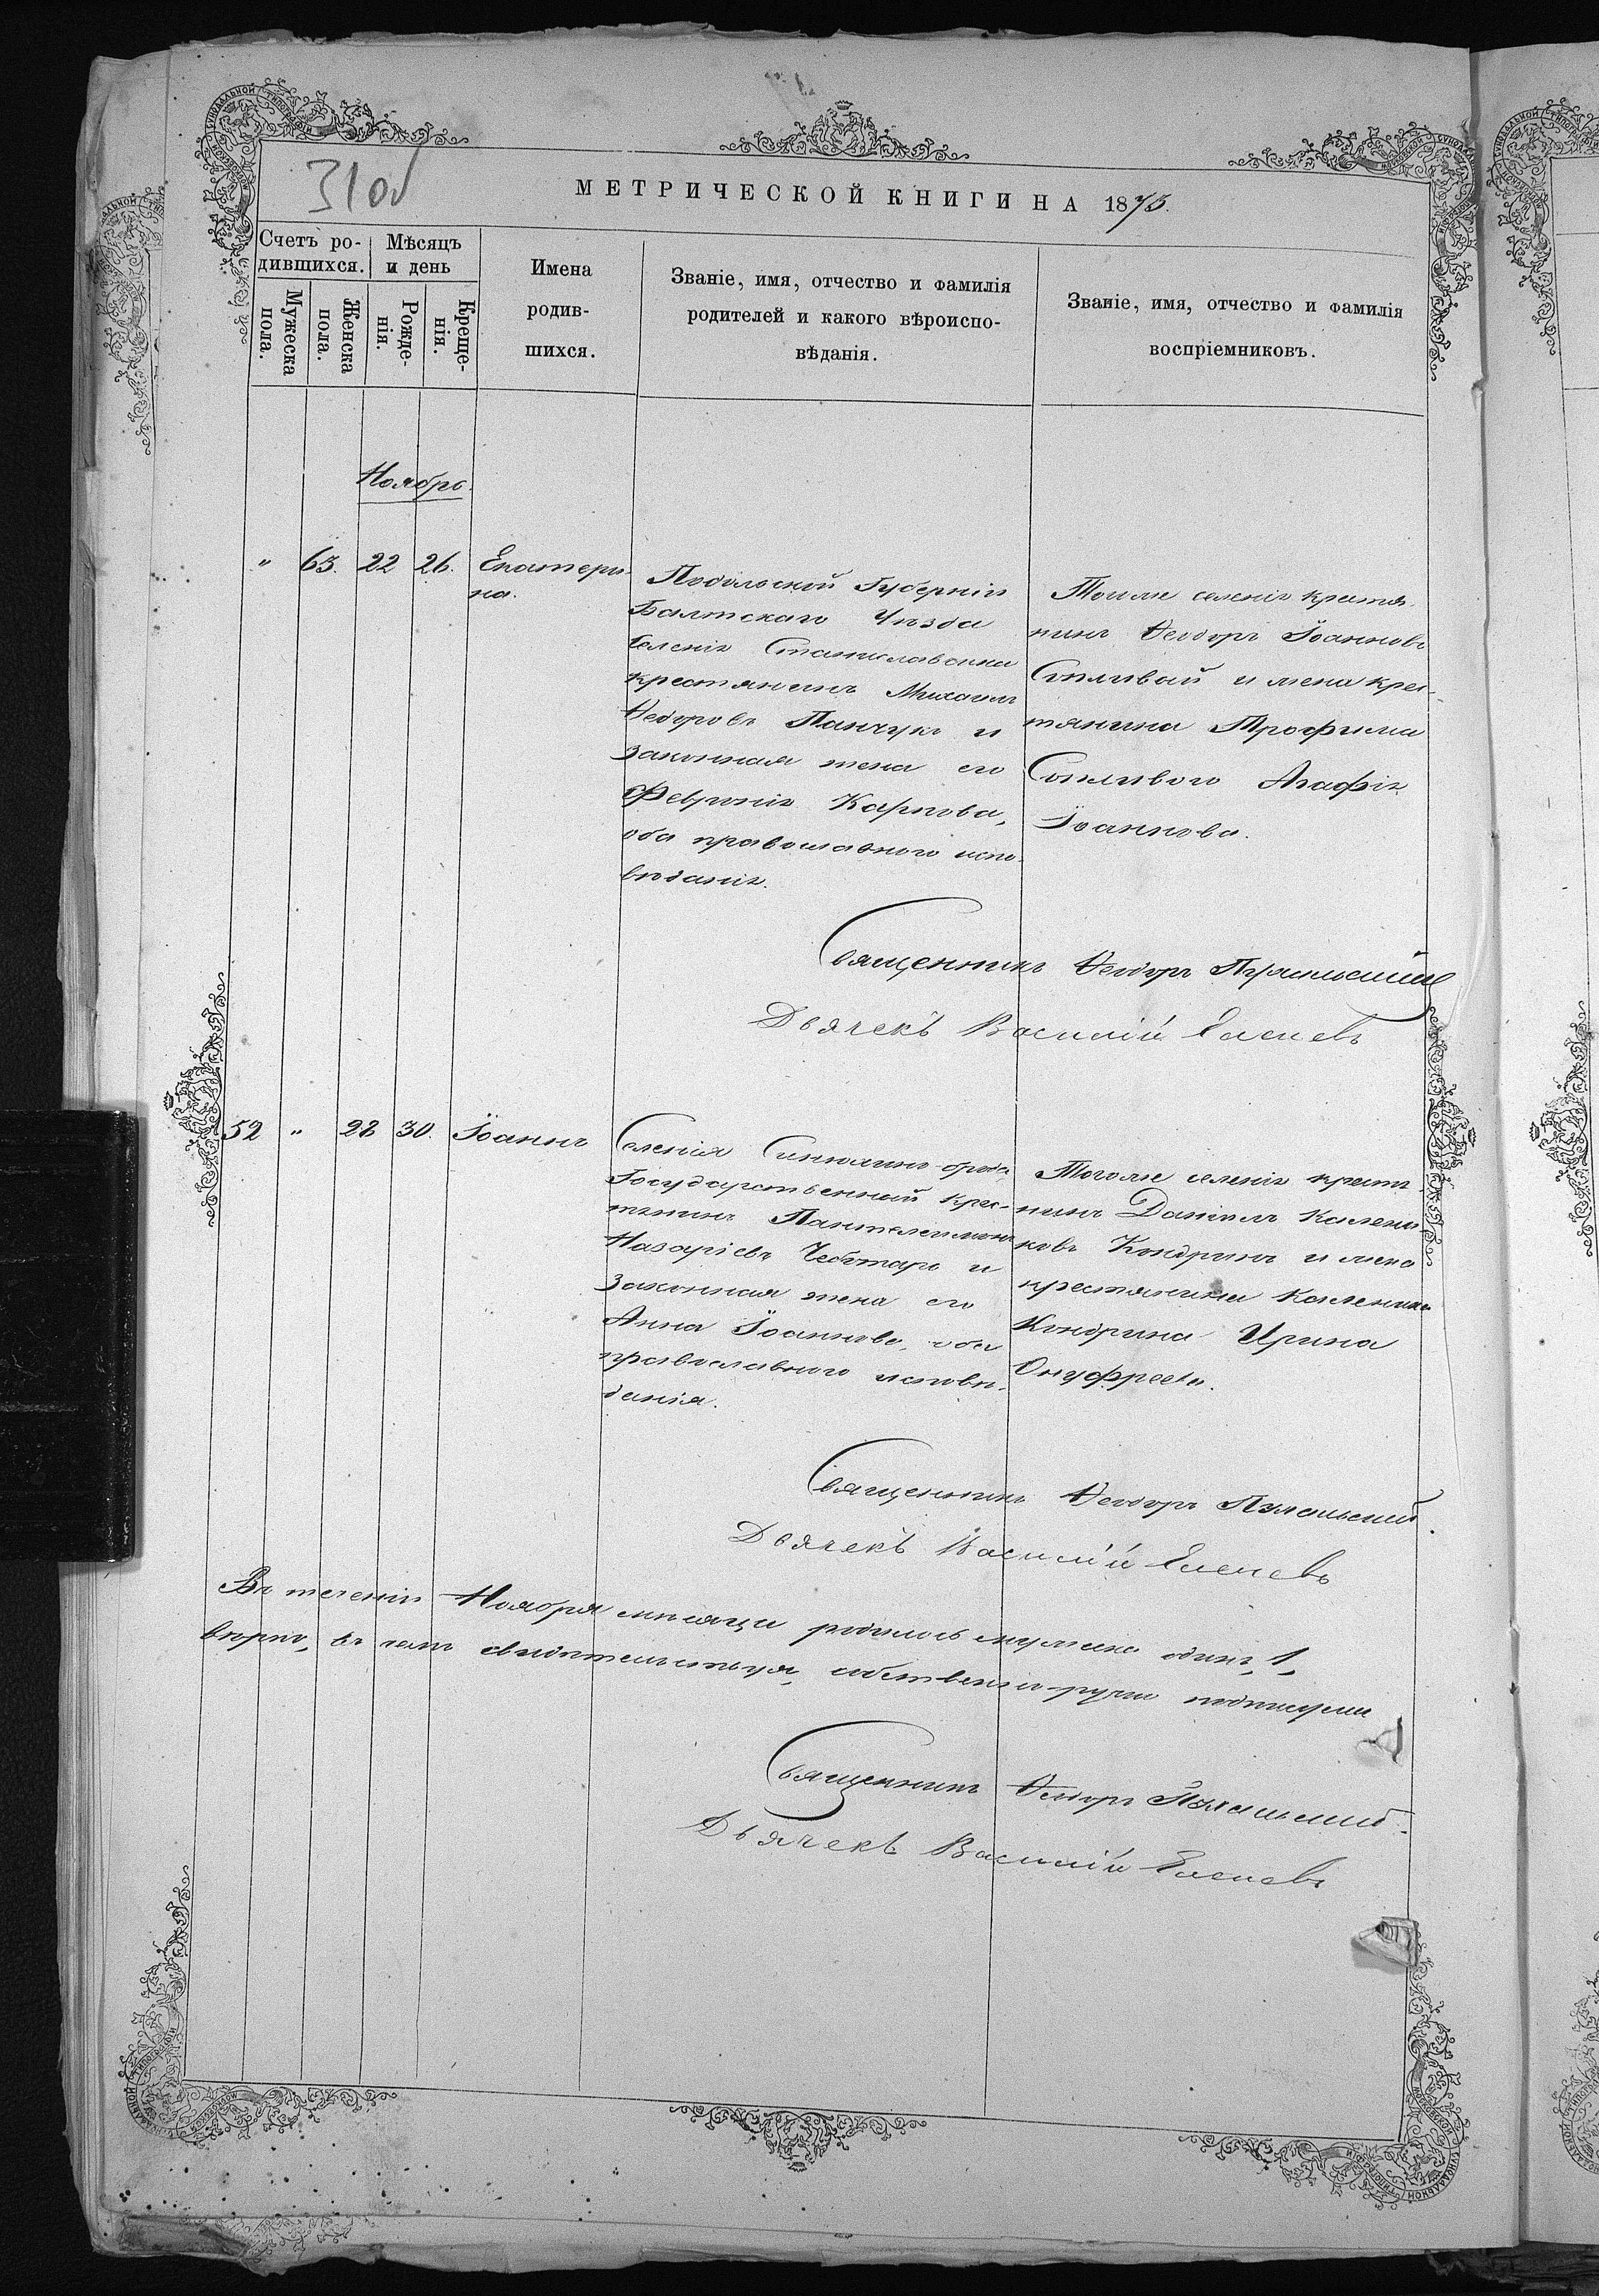 31об
МЕТРИЧЕСКОЙ КНИГИ НА 1875.
Счетъ ро-
дившихся.
Мѣсяцъ
и день
Мужеска
пола.
Женска
пола.
Рожде-
нія.
Креще-
нія.
Имена
родив-
шихся.
Званіе, имя, отчество и фамилія
родителей и какого вѣроиспо-
вѣданія.
Званіе, имя, отчество и фамилія
воспріемниковъ.
Ноябрь.
" 63. 22 26. Екатери-
на.
Подольской Губерніи
Балтскаго Уѣзда
Селенія Станиславки
крестьянинъ Михаилъ
Ѳедоровъ Панчукъ и
законная жена его
Феѵронія Карпова,
оба православного испо-
вѣданія.
Тогоже селенія крестья-
нинъ Ѳеодоръ Іоанновъ
Сопливый и жена крес-
тьянина Трофима
Сопливого Агафія
Іоаннова.
Священникъ Ѳеодоръ
Дьячекъ Василій
52 " 28 30. Іоаннъ
Селенія
Государственный крес-
тьянинъ Пантелеимонъ
Назаріевъ Чеботарь и
законная жена его
Анна Іоаннова, оба
православного исповѣ-
данія.
Тогоже селенія крестья-
нинъ Даніилъ Калени-
ковъ Кондринъ и жена
крестьянина Каленика
Кондрина Ирина
Онуфреева.
Священникъ Ѳеодоръ
Дьячекъ Василій
Въ теченіи Ноября мѣсяца родилось мужска одинъ, 1,
вѣрно, въ чемъ свидѣтельствуя, собственноручно подписуемся
Священникъ Ѳеодоръ
Дьячекъ Василій